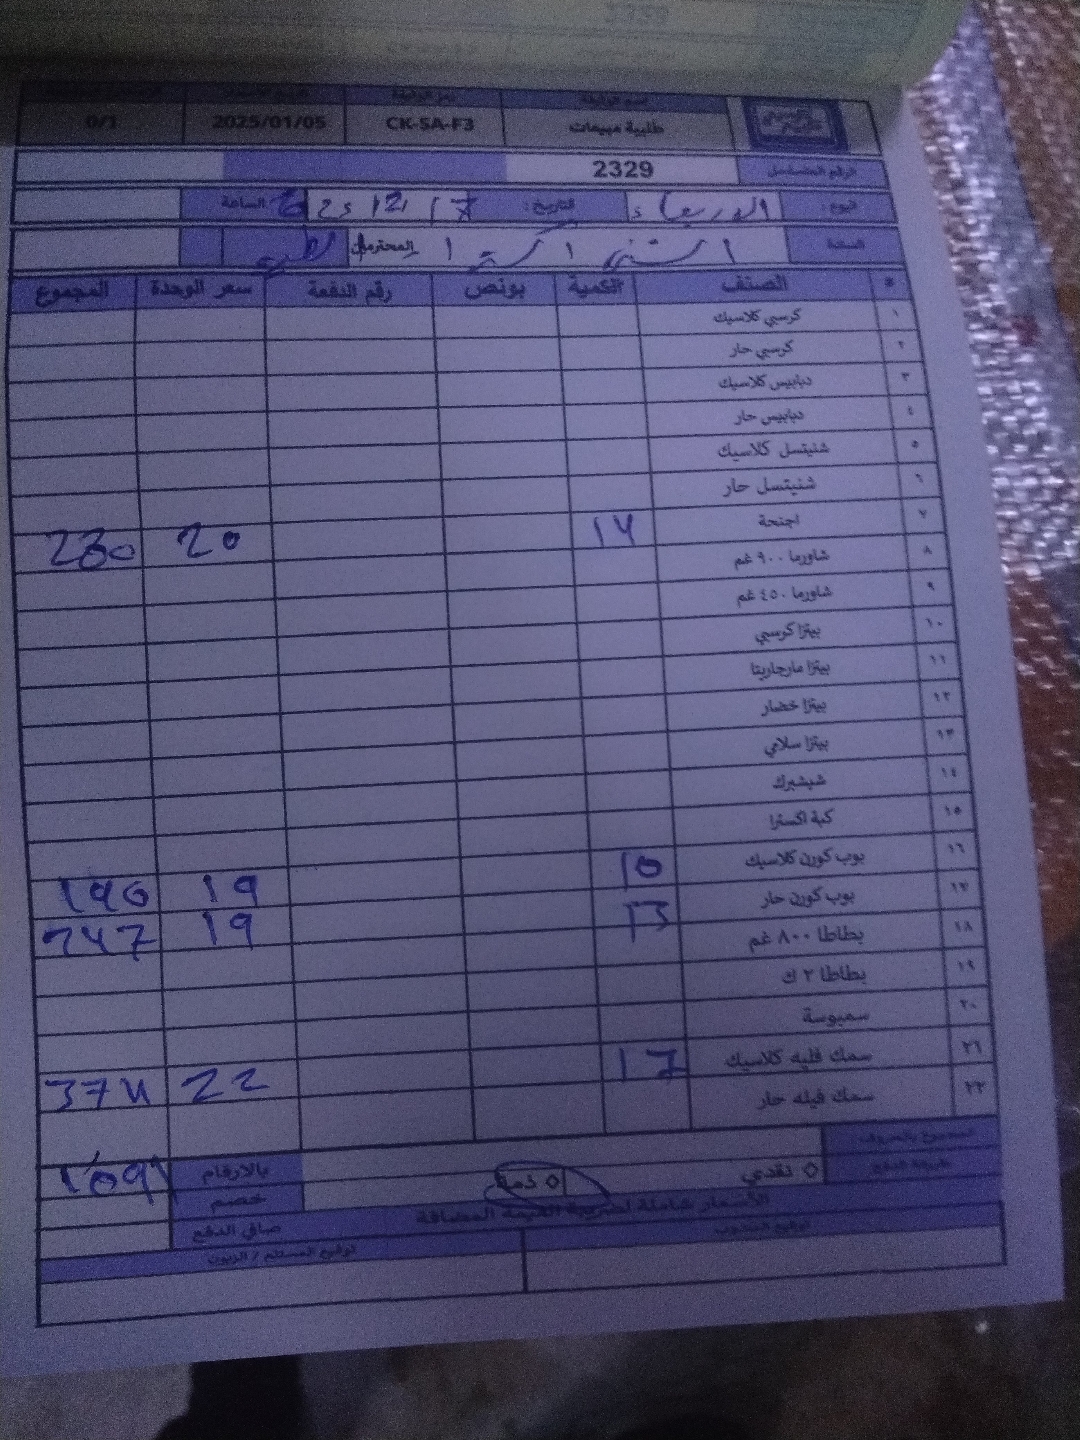 اسم الوثيقة رمز الوثيقة
طلبية مبيعات CK-SA-F3 2025/01/05 0/1
الرقم المتسلسل 2329
اليوم : الاربعاء التاريخ : 17 12 25 الساعة
السادة المحترمين
# الصنف الكمية بونص رقم الدفعة سعر الوحدة المجموع
١ كرسبي كلاسيك
٢ كرسبي حار
٣ دبابيس كلاسيك
٤ دبابيس حار
٥ شنيتسل كلاسيك
٦ شنيتسل حار
٧ اجنحة 14 20 280
٨ شاورما ٩٠٠ غم
٩ شاورما ٤٥٠ غم
١٠ بيتزا كرسبي
١١ بيتزا مارجاريتا
١٢ بيتزا خضار
١٣ بيتزا سلامي
١٤ شيشبرك
١٥ كبة اكسترا
١٦ بوب كورن كلاسيك 10 19 190
١٧ بوب كورن حار 13 19 247
١٨ بطاطا ٨٠٠ غم
١٩ بطاطا ٢ ك
٢٠ سمبوسة
٢١ سمك فليه كلاسيك 17 22 374
٢٢ سمك فيله حار
المجموع بالحروف بالارقام 1091
طريقة الدفع ○ نقدي ○ ذمة خصم
الأسعار شاملة لضريبة القيمة المضافة صافي الدفع
توقيع المندوب توقيع المستلم / الزبون